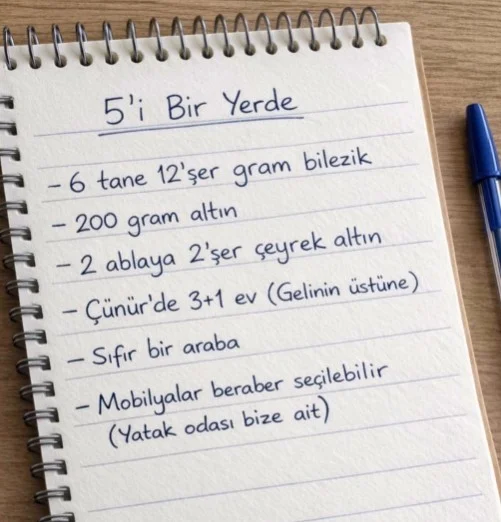 5'i Bir Yerde
- 6 tane 12'şer gram bilezik
- 200 gram altın
- 2 ablaya 2'şer çeyrek altın
- Çünür'de 3+1 ev (Gelinin üstüne)
- Sıfır bir araba
- Mobilyalar beraber seçilebilir
(Yatak odası bize ait)